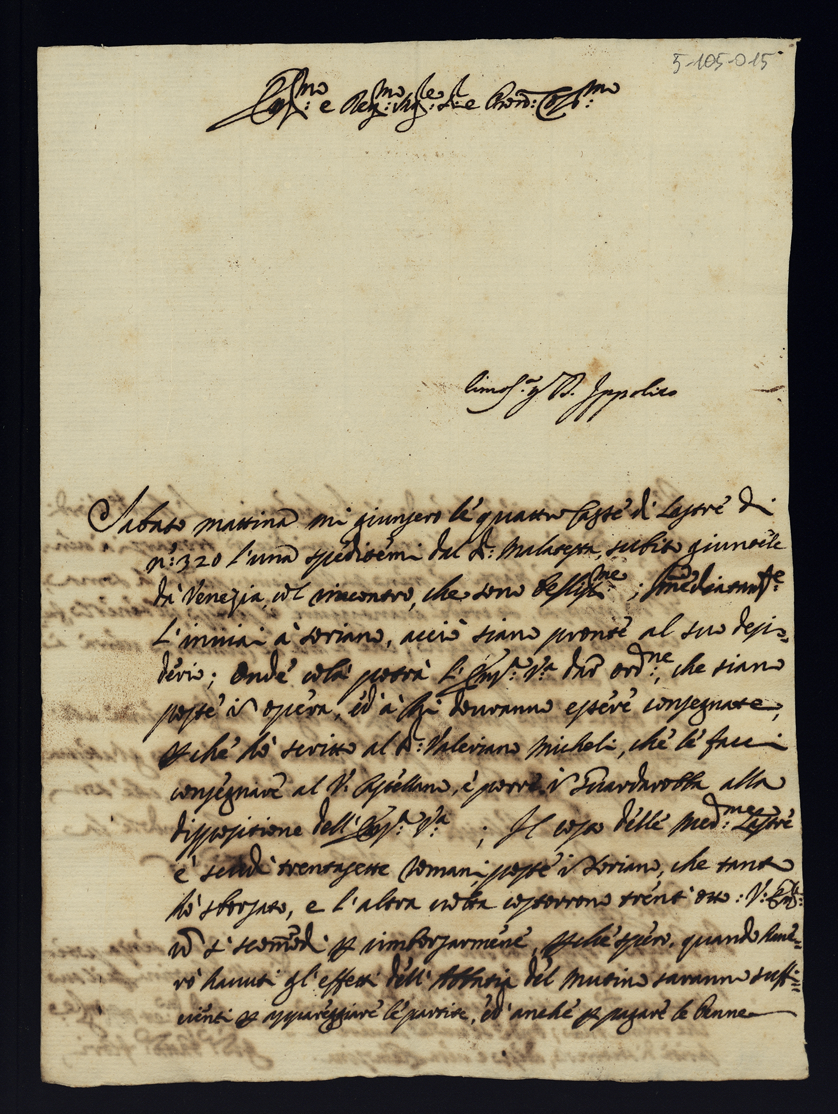 5-105-015
Em:mo e Rev:mo Sig:re S:r e Pron: Col:mo
limos:a p B. Ippolito
Sabato mattina mi giunsero le quattro Casse di Lastre di
n:o 320 l'una speditemi dal S:r Malatesta, subito giunteli
da Venezia, col rincontro, che sono bellissi:me; Immediatam:te
L'inviai à Soriano, acciò siano pronte al suo desi=
derio; Onde colà potrà L'Em:a V:a dar ord:ne, che siano
poste in opera, ed à chi douranno essere consegnate,
p che hò scritto al S:r Valeriano Micheli, che le facci
consegnare al V: Castellano, e porre in Guardarobba alla
disposizione dell'Em:a V:a; Il costo delle med:me Lastre
è scudi trentasette romani poste in Soriano, che tanto
hò sborsato, e l'altra volta costorono trent'otto: V: Em:
non si scomodi p rimborsarmene, p che spero, quando haue=
rò hauuti gl'effetti dell'Abbatia del Mutino saranno suffi=
cienti p appareggiare le partite, ed anche p pagare le Penne